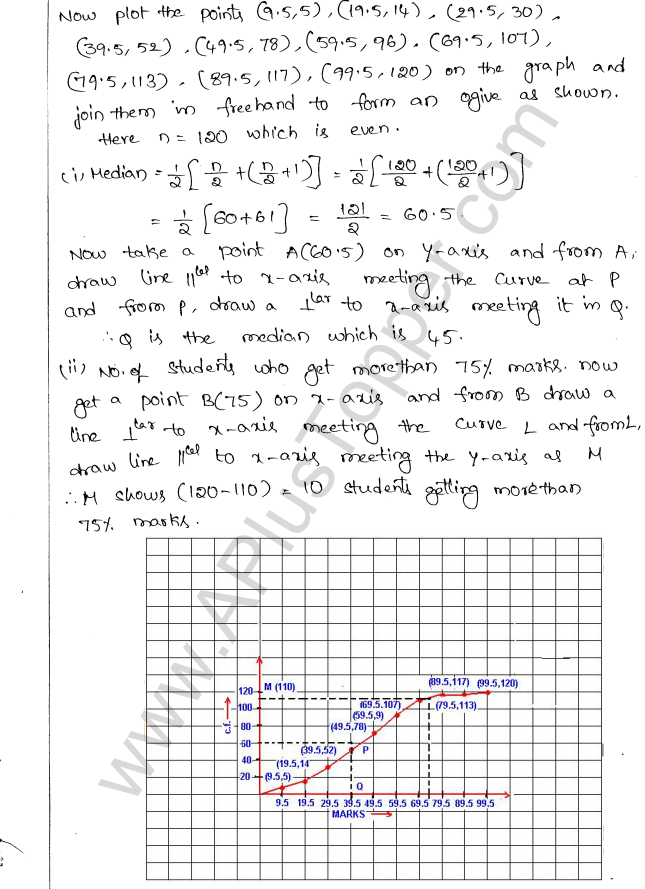 Now plot the points (9.5,5), (19.5,14), (29.5,30),
(39.5,52), (49.5,78), (59.5,96), (69.5,107),
(79.5,113), (89.5,117), (99.5,120) on the graph and
join them in freehand to form an ogive as shown.
Here n = 120 which is even.
(i) Median = 1/2 [n/2 + (n/2 + 1)] = 1/2 [120/2 + (120/2 + 1)]
= 1/2 [60+61] = 121/2 = 60.5
Now take a point A(60.5) on Y-axis and from A,
draw line ||lel to x-axis meeting the curve at P
and from P, draw a ⊥lar to x-axis meeting it in Q.
∴ Q is the median which is 45.
(ii) No. of students who get more than 75% marks. now
get a point B(75) on x-axis and from B draw a
line ⊥lar to x-axis meeting the curve L and from L,
draw line ||lel to x-axis meeting the y-axis as M
∴ M shows (120-110) = 10 students getting more than
75% marks.
www.APlusTopper.com
(89.5,117) (99.5,120)
120 M (110)
(69.5.107) (79.5,113)
100
(59.5,9)
c.f.
80 (49.5,78)
60 (39.5,52) P
40 (19.5,14
20 (9.5,5)
Q
9.5 19.5 29.5 39.5 49.5 59.5 69.5 79.5 89.5 99.5
MARKS